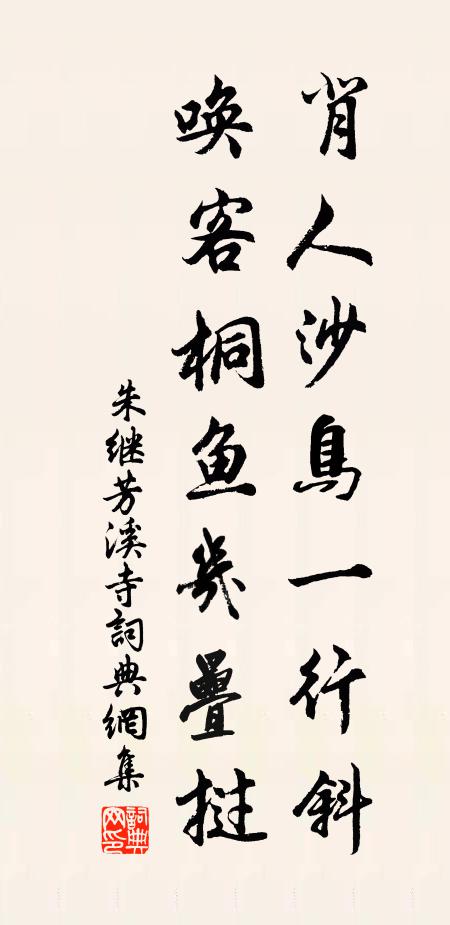 背人沙鳥一行斜
喚客桐鱼幾疊撻
朱继芳溪寺詞典網集
詞典網印